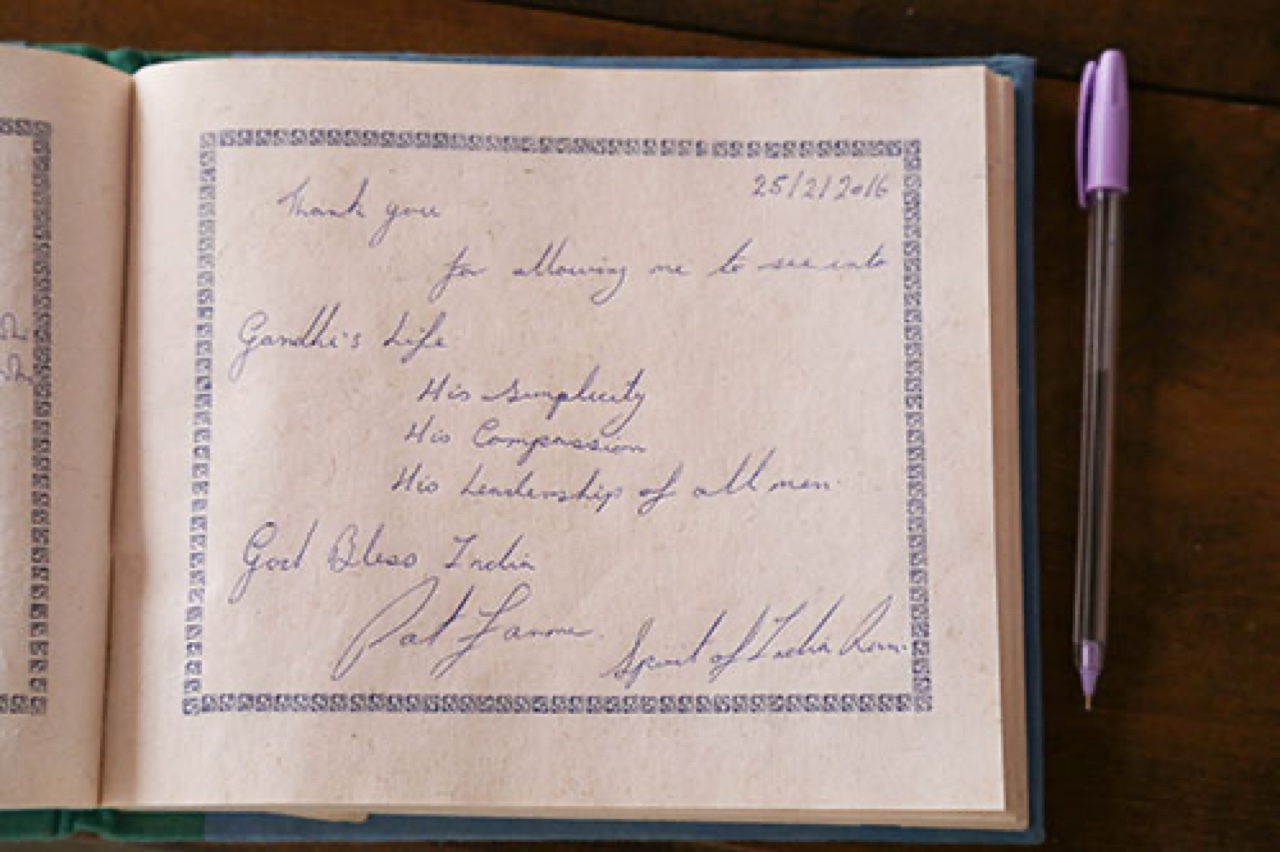 25/2/2016
Thank you
for allowing me to see into
Gandhi's Life
His Simplicity
His Compassion
His Leadership of all men.
God Bless India
Pat Farmer.
Spirit of India Run.